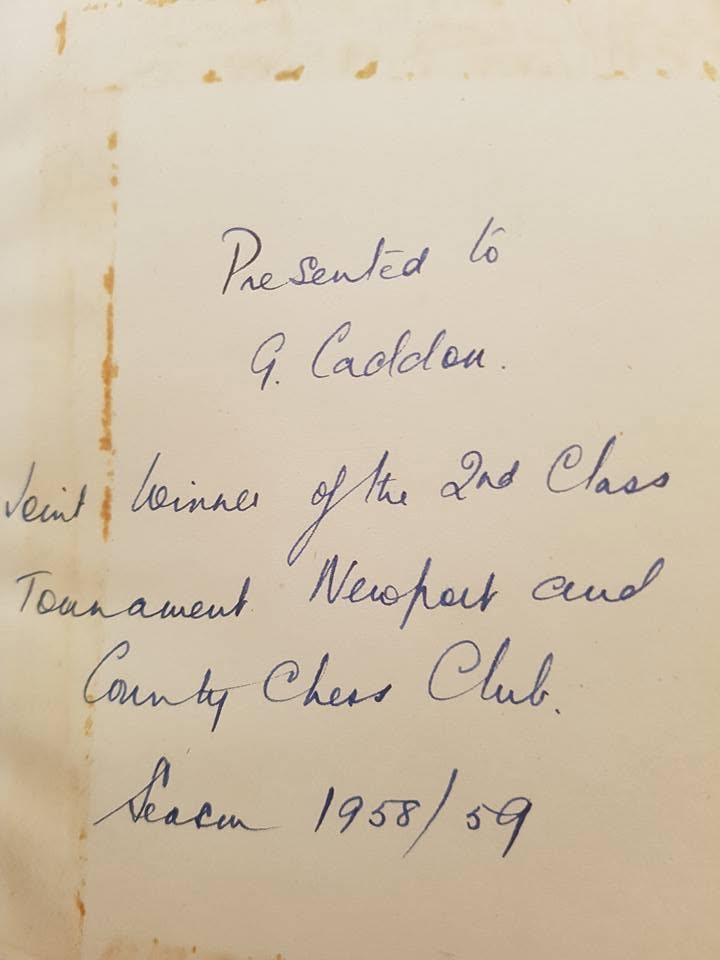 Presented to
G. Caddon.
Joint Winner of the 2nd Class
Tournament Newport and
County Chess Club.
Season 1958/59